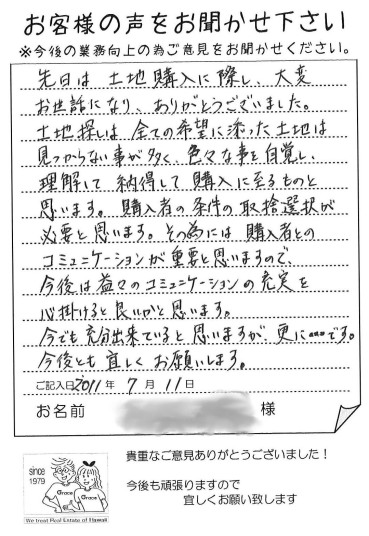 お客様の声をお聞かせ下さい
※今後の業務向上の為ご意見をお聞かせください。
先日は土地購入に際し、大変
お世話になり、ありがとうございました。
土地探しは、全ての希望に添った土地は
見つからない事が多く、色々な事を自覚し、
理解して納得して購入に至るものと
思います。購入者の条件の取捨選択が
必要と思います。その為には購入者との
コミュニケーションが重要と思いますので、
今後は益々のコミュニケーションの充実を
心掛けると良いかと思います。
今でも充分出来ていると思いますが、更に…です。
今後とも宜しくお願いします。
ご記入日 2011年 7月 11日
お名前 様
since
1979
Grace
Grace
We trust Real Estate of Hawaii
貴重なご意見ありがとうございました!
今後も頑張りますので
宜しくお願い致します